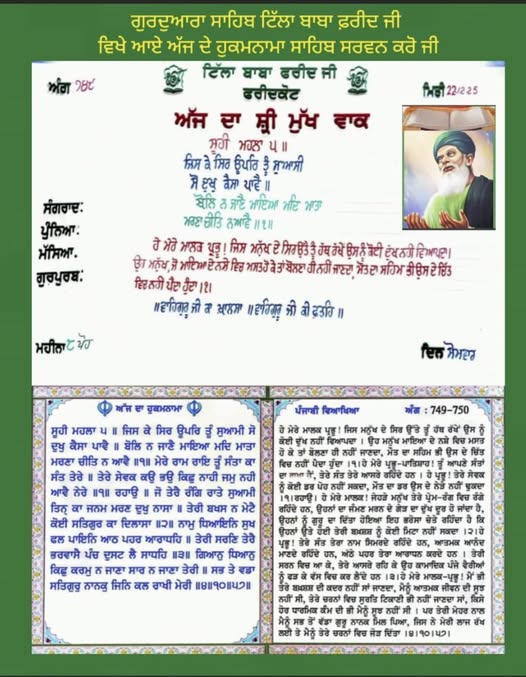 ਗੁਰਦੁਆਰਾ ਸਾਹਿਬ ਟਿੱਲਾ ਬਾਬਾ ਫ਼ਰੀਦ ਜੀ
ਵਿਖੇ ਆਏ ਅੱਜ ਦੇ ਹੁਕਮਨਾਮਾ ਸਾਹਿਬ ਸਰਵਨ ਕਰੋ ਜੀ
ਟਿੱਲਾ ਬਾਬਾ ਫਰੀਦ ਜੀ
ਫਰੀਦਕੋਟ
ਅੰਗ ੭੪੯
ਮਿਤੀ 22.12.25
ਅੱਜ ਦਾ ਸ਼੍ਰੀ ਮੁੱਖ ਵਾਕ
ਸੂਹੀ ਮਹਲਾ ੫ ॥
ਜਿਸ ਕੇ ਸਿਰ ਊਪਰਿ ਤੂੰ ਸੁਆਮੀ
ਸੋ ਦੁਖੁ ਕੈਸਾ ਪਾਵੈ ॥
ਬੋਲਿ ਨ ਜਾਣੈ ਮਾਇਆ ਮਦਿ ਮਾਤਾ
ਮਰਣਾ ਚੀਤਿ ਨ ਆਵੈ ॥੧॥
ਸੰਗਰਾਦ:
ਪੁੰਨਿਆ:
ਮੱਸਿਆ:
ਗੁਰਪੁਰਬ:
ਹੇ ਮੇਰੇ ਮਾਲਕ ਪ੍ਰਭੂ! ਜਿਸ ਮਨੁੱਖ ਦੇ ਸਿਰ ਉਤੇ ਤੂੰ ਹੱਥ ਰੱਖੇਂ ਉਸ ਨੂੰ ਕੋਈ ਦੁੱਖ ਨਹੀਂ ਵਿਆਪਦਾ।
ਉਹ ਮਨੁੱਖ, ਜੋ ਮਾਇਆ ਦੇ ਨਸ਼ੇ ਵਿਚ ਮਸਤ ਹੋ ਕੇ ਤਾਂ ਬੋਲਣਾ ਹੀ ਨਹੀਂ ਜਾਣਦਾ, ਮੌਤ ਦਾ ਸਹਿਮ ਭੀ ਉਸ ਦੇ ਚਿੱਤ
ਵਿਚ ਨਹੀਂ ਪੈਦਾ ਹੁੰਦਾ ।੧।
॥ਵਾਹਿਗੁਰੂ ਜੀ ਕਾ ਖ਼ਾਲਸਾ ॥ਵਾਹਿਗੁਰੂ ਜੀ ਕੀ ਫ਼ਤਹਿ ॥
ਮਹੀਨਾ ੮ ਪੋਹ
ਦਿਨ ਸੋਮਵਾਰ
ਅੱਜ ਦਾ ਹੁਕਮਨਾਮਾ
ਸੂਹੀ ਮਹਲਾ ੫ ॥ ਜਿਸ ਕੇ ਸਿਰ ਊਪਰਿ ਤੂੰ ਸੁਆਮੀ ਸੋ
ਦੁਖੁ ਕੈਸਾ ਪਾਵੈ ॥ ਬੋਲਿ ਨ ਜਾਣੈ ਮਾਇਆ ਮਦਿ ਮਾਤਾ
ਮਰਣਾ ਚੀਤਿ ਨ ਆਵੈ ॥੧॥ ਮੇਰੇ ਰਾਮ ਰਾਇ ਤੂੰ ਸੰਤਾ ਕਾ
ਸੰਤ ਤੇਰੇ ॥ ਤੇਰੇ ਸੇਵਕ ਕਉ ਭਉ ਕਿਛੁ ਨਾਹੀ ਜਮੁ ਨਹੀ
ਆਵੈ ਨੇਰੇ ॥੧॥ ਰਹਾਉ ॥ ਜੋ ਤੇਰੈ ਰੰਗਿ ਰਾਤੇ ਸੁਆਮੀ
ਤਿਨ੍ ਕਾ ਜਨਮ ਮਰਣ ਦੁਖੁ ਨਾਸਾ ॥ ਤੇਰੀ ਬਖਸ ਨ ਮੇਟੈ
ਕੋਈ ਸਤਿਗੁਰ ਕਾ ਦਿਲਾਸਾ ॥੨॥ ਨਾਮੁ ਧਿਆਇਨਿ ਸੁਖ
ਫਲ ਪਾਇਨਿ ਆਠ ਪਹਰ ਆਰਾਧਹਿ ॥ ਤੇਰੀ ਸਰਣਿ ਤੇਰੈ
ਭਰਵਾਸੈ ਪੰਚ ਦੁਸਟ ਲੈ ਸਾਧਹਿ ॥੩॥ ਗਿਆਨੁ ਧਿਆਨੁ
ਕਿਛੁ ਕਰਮੁ ਨ ਜਾਣਾ ਸਾਰ ਨ ਜਾਣਾ ਤੇਰੀ ॥ ਸਭ ਤੇ ਵਡਾ
ਸਤਿਗੁਰੁ ਨਾਨਕੁ ਜਿਨਿ ਕਲ ਰਾਖੀ ਮੇਰੀ ॥੪॥੧੦॥੫੭॥
ਪੰਜਾਬੀ ਵਿਆਖਿਆ ਅੰਗ : 749-750
ਹੇ ਮੇਰੇ ਮਾਲਕ ਪ੍ਰਭੂ! ਜਿਸ ਮਨੁੱਖ ਦੇ ਸਿਰ ਉੱਤੇ ਤੂੰ ਹੱਥ ਰੱਖੇਂ ਉਸ ਨੂੰ
ਕੋਈ ਦੁੱਖ ਨਹੀਂ ਵਿਆਪਦਾ । ਉਹ ਮਨੁੱਖ ਮਾਇਆ ਦੇ ਨਸ਼ੇ ਵਿਚ ਮਸਤ
ਹੋ ਕੇ ਤਾਂ ਬੋਲਣਾ ਹੀ ਨਹੀਂ ਜਾਣਦਾ, ਮੌਤ ਦਾ ਸਹਿਮ ਭੀ ਉਸ ਦੇ ਚਿੱਤ
ਵਿਚ ਨਹੀਂ ਪੈਦਾ ਹੁੰਦਾ ।੧।ਹੇ ਮੇਰੇ ਪ੍ਰਭੂ-ਪਾਤਿਸ਼ਾਹ! ਤੂੰ ਆਪਣੇ ਸੰਤਾਂ
ਦਾ ਹੈਂ, ਤੇਰੇ ਸੰਤ ਤੇਰੇ ਆਸਰੇ ਰਹਿੰਦੇ ਹਨ । ਹੇ ਪ੍ਰਭੂ! ਤੇਰੇ ਸੇਵਕ
ਨੂੰ ਕੋਈ ਡਰ ਪੋਹ ਨਹੀਂ ਸਕਦਾ, ਮੌਤ ਦਾ ਡਰ ਉਸ ਦੇ ਨੇੜੇ ਨਹੀਂ ਢੁਕਦਾ
।੧।ਰਹਾਉ। ਹੇ ਮੇਰੇ ਮਾਲਕ! ਜੇਹੜੇ ਮਨੁੱਖ ਤੇਰੇ ਪ੍ਰੇਮ-ਰੰਗ ਵਿਚ ਰੰਗੇ
ਰਹਿੰਦੇ ਹਨ, ਉਹਨਾਂ ਦਾ ਜੰਮਣ ਮਰਨ ਦੇ ਗੇੜ ਦਾ ਦੁੱਖ ਦੂਰ ਹੋ ਜਾਂਦਾ ਹੈ,
ਉਹਨਾਂ ਨੂੰ ਗੁਰੂ ਦਾ ਦਿੱਤਾ ਹੋਇਆ ਇਹ ਭਰੋਸਾ ਚੇਤੇ ਰਹਿੰਦਾ ਹੈ ਕਿ
ਉਹਨਾਂ ਉੱਤੇ ਹੋਈ ਤੇਰੀ ਬਖ਼ਸ਼ਸ਼ ਨੂੰ ਕੋਈ ਮਿਟਾ ਨਹੀਂ ਸਕਦਾ ।੨।ਹੇ
ਪ੍ਰਭੂ! ਤੇਰੇ ਸੰਤ ਤੇਰਾ ਨਾਮ ਸਿਮਰਦੇ ਰਹਿੰਦੇ ਹਨ, ਆਤਮਕ ਆਨੰਦ
ਮਾਣਦੇ ਰਹਿੰਦੇ ਹਨ, ਅੱਠੇ ਪਹਰ ਤੇਰਾ ਆਰਾਧਨ ਕਰਦੇ ਹਨ । ਤੇਰੀ
ਸਰਨ ਵਿਚ ਆ ਕੇ, ਤੇਰੇ ਆਸਰੇ ਰਹਿ ਕੇ ਉਹ ਕਾਮਾਦਿਕ ਪੰਜੇ ਵੈਰੀਆਂ
ਨੂੰ ਫੜ ਕੇ ਵੱਸ ਵਿਚ ਕਰ ਲੈਂਦੇ ਹਨ ।੩।ਹੇ ਮੇਰੇ ਮਾਲਕ-ਪ੍ਰਭੂ! ਮੈਂ ਭੀ
ਤੇਰੇ ਬਖ਼ਸ਼ਸ਼ ਦੀ ਕਦਰ ਨਹੀਂ ਸਾਂ ਜਾਣਦਾ, ਮੈਨੂੰ ਆਤਮਕ ਜੀਵਨ ਦੀ ਸੂਝ
ਨਹੀਂ ਸੀ, ਤੇਰੇ ਚਰਨਾਂ ਵਿਚ ਸੁਰਤਿ ਟਿਕਾਣੀ ਭੀ ਨਹੀਂ ਜਾਣਦਾ ਸਾਂ, ਕਿਸੇ
ਹੋਰ ਧਾਰਮਿਕ ਕੰਮ ਦੀ ਭੀ ਮੈਨੂੰ ਸੂਝ ਨਹੀਂ ਸੀ । ਪਰ ਤੇਰੀ ਮੇਹਰ ਨਾਲ
ਮੈਨੂੰ ਸਭ ਤੋਂ ਵੱਡਾ ਗੁਰੂ ਨਾਨਕ ਮਿਲ ਪਿਆ, ਜਿਸ ਨੇ ਮੇਰੀ ਲਾਜ ਰੱਖ
ਲਈ ਤੇ ਮੈਨੂੰ ਤੇਰੇ ਚਰਨਾਂ ਵਿਚ ਜੋੜ ਦਿੱਤਾ ।੪।੧੦।੫੭।